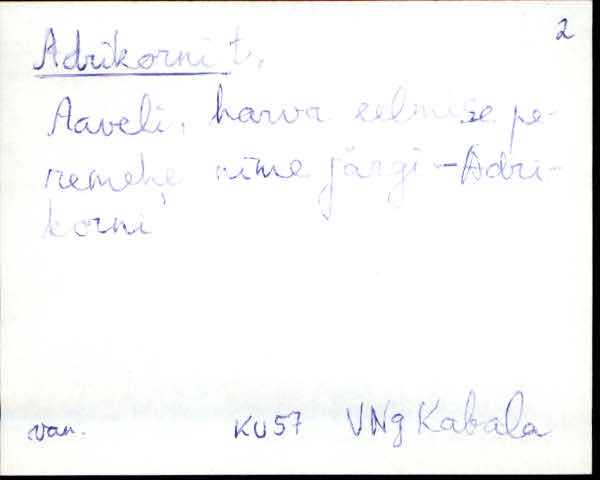 2
Adrikorni t.
Aaveli, harva eelmise pe-
remehe nime järgi - Adri-
korni
van. KU57 VNg Kabala